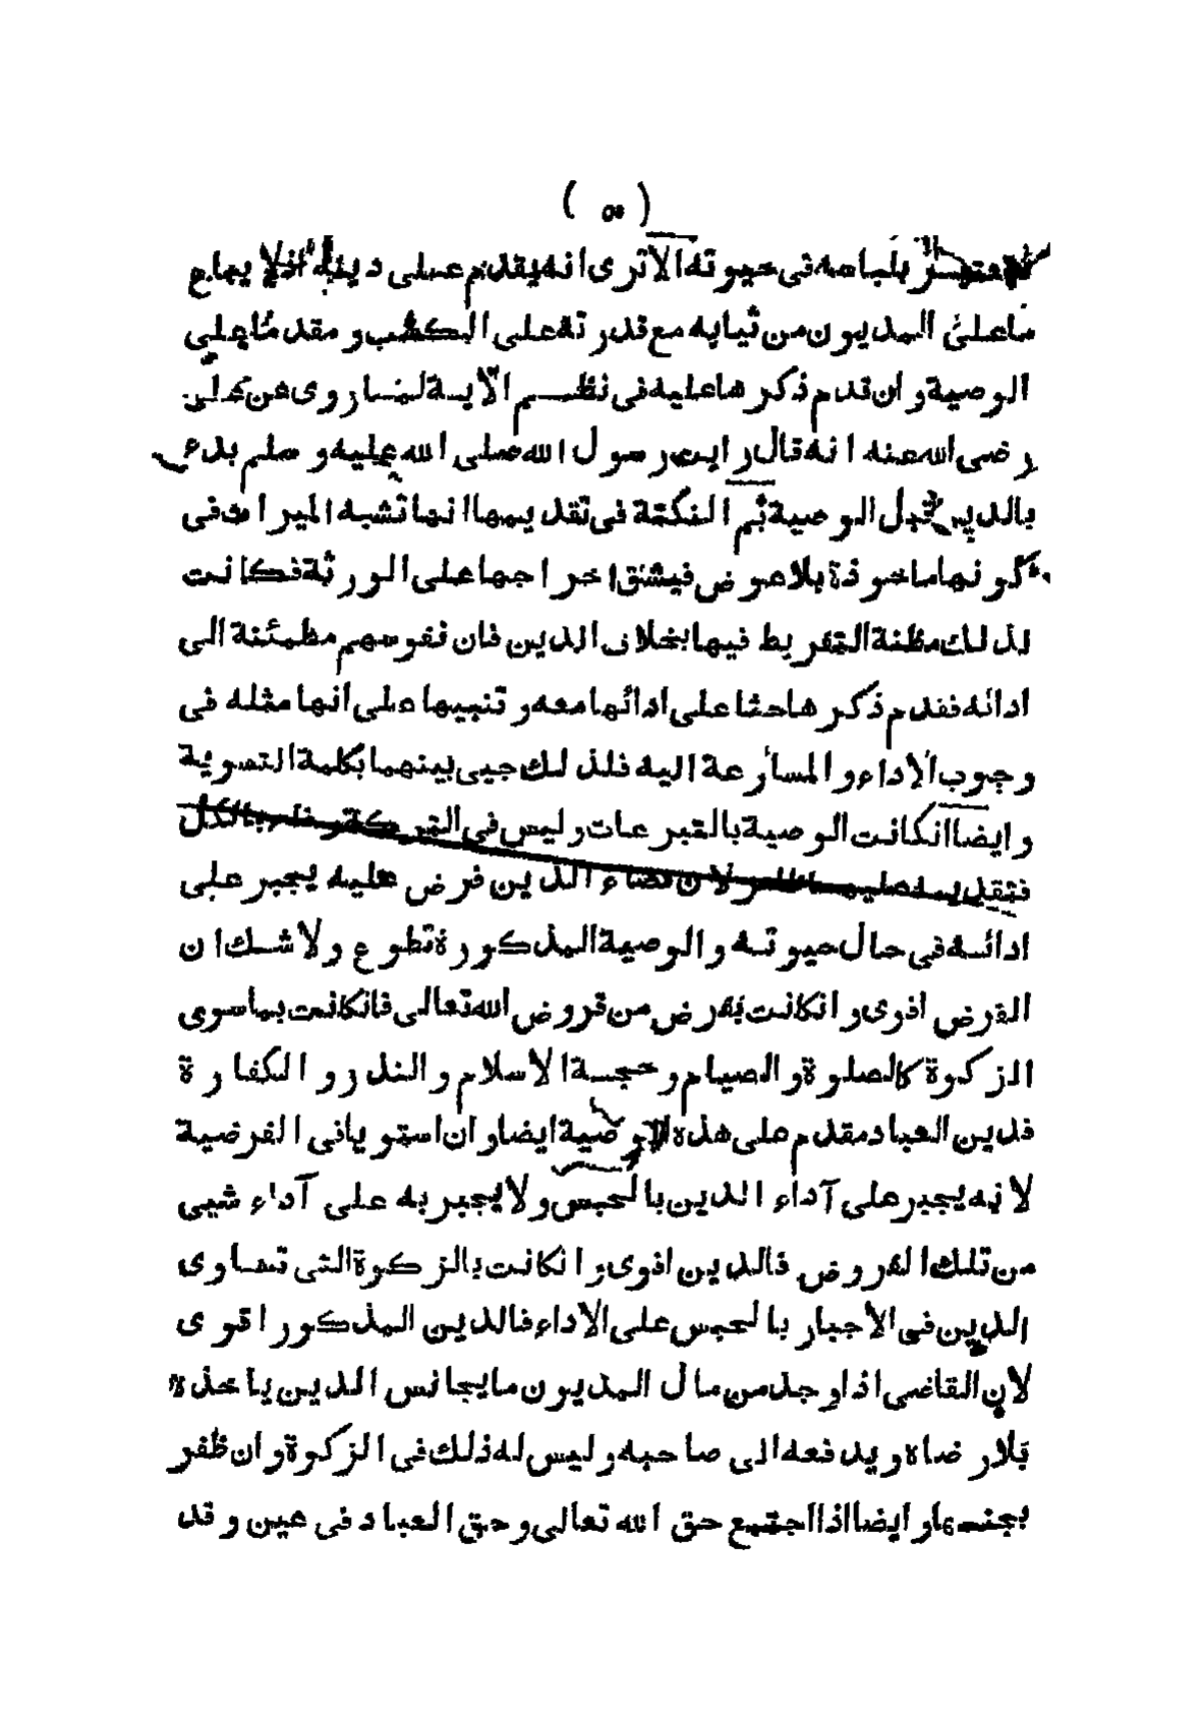 ( ٥ )
بلباسه فى حيوته الا ترى انه يقدم على دينه اذ لا يباع
ما على المديون من ثيابه مع قدرته على الكسب ومقدما على
الوصية وان قدم ذكرها عليه فى نظم الآية لما روى عن على
رضى الله عنه انه قال رايت رسول الله صلى الله عليه و سلم بدء
بالدين قبل الوصية ثم النكتة فى تقديمها انها تشبه الميراث فى
كونها ماخوذة بلا عوض فيشق اخراجها على الورثة فكانت
لذلك مظنة التفريط فيها بخلاف الدين فان نفوسهم مطمئنة الى
ادائه فقدم ذكرها حثا على ادائها معه و تنبيها على انها مثله فى
وجوب الاداء و المسارعة اليه فلذلك جيى بينهما بكلمة التسوية
و ايضا انكانت الوصية بالتبرعات وليس فى التركة وفاء بالكل
فتقديمه عليها ظاهر لان قضاء الدين فرض عليه يجبر على
ادائه فى حال حيوته و الوصية المذكورة تطوع ولا شك ان
الفرض اقوى و انكانت بفرض من فروض الله تعالى فانكانت بما سوى
الزكوة كالصلوة والصيام وحجة الاسلام و النذر و الكفارة
فدين العباد مقدم على هذه الوصية ايضا وان استويا فى الفرضية
لانه يجبر على آداء الدين بالحبس و لا يجبر به على آداء شيى
من تلك الفروض فالدين اقوى و انكانت بالزكوة التى تساوى
الدين فى الاجبار بالحبس على الاداء فالدين المذكور اقوى
لان القاضى اذا وجد من مال المديون ما يجانس الدين ياخذه
بلا رضاه ويدفعه الى صاحبه وليس له ذلك فى الزكوة وان ظفر
بجنسها و ايضا اذا اجتمع حق الله تعالى وحق العباد فى عين وقد